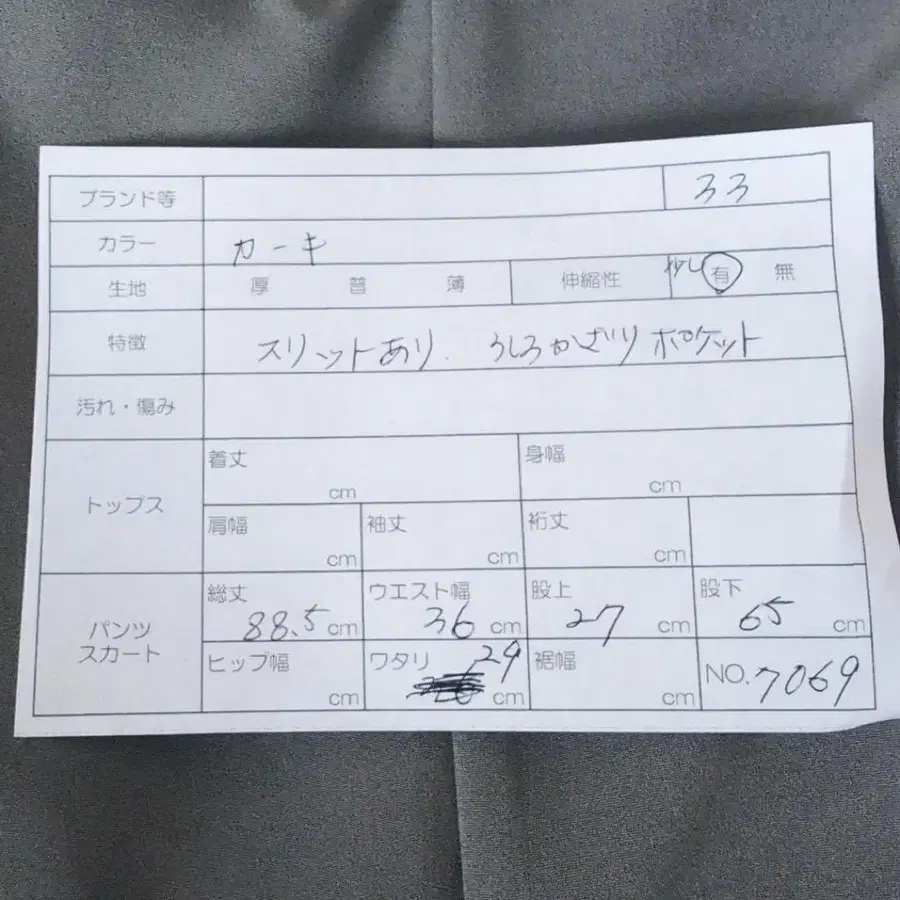 ブランド等 33
カラー カーキ
生地 厚 普 薄 伸縮性 少し 有 無
特徴 スリットあり. うしろかざりポケット
汚れ・傷み
トップス
着丈 cm 身幅 cm
肩幅 cm 袖丈 cm 裄丈 cm
パンツ
スカート
総丈 88.5 cm ウエスト幅 36 cm 股上 27 cm 股下 65 cm
ヒップ幅 cm ワタリ 29 cm 裾幅 cm NO. 7069